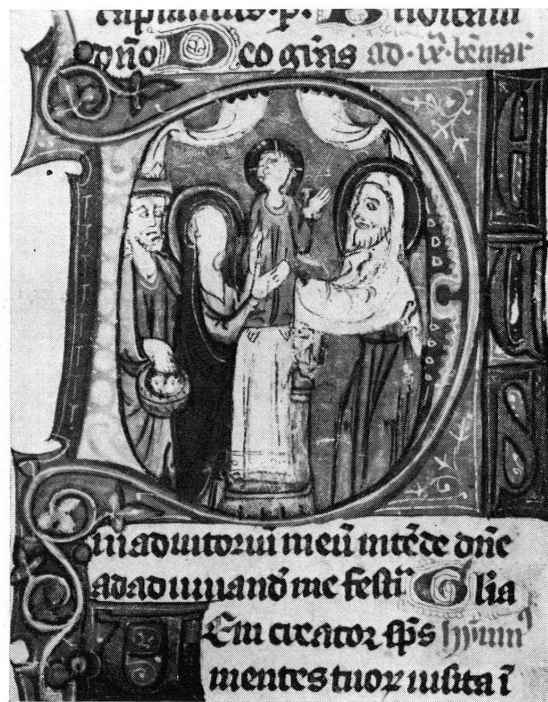 capiamus. p. B
dño Deo grãs ad
E
U
S
in adiutoriũ meũ intẽde dñe
ad adiuuand̃ me festĩ Glia
Ueni creator sp̃s hymn⁹
mentes tuoꝝ uisita ĩ